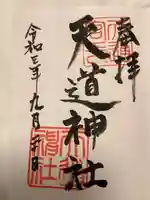 奉拝
天道神社
令和三年九月